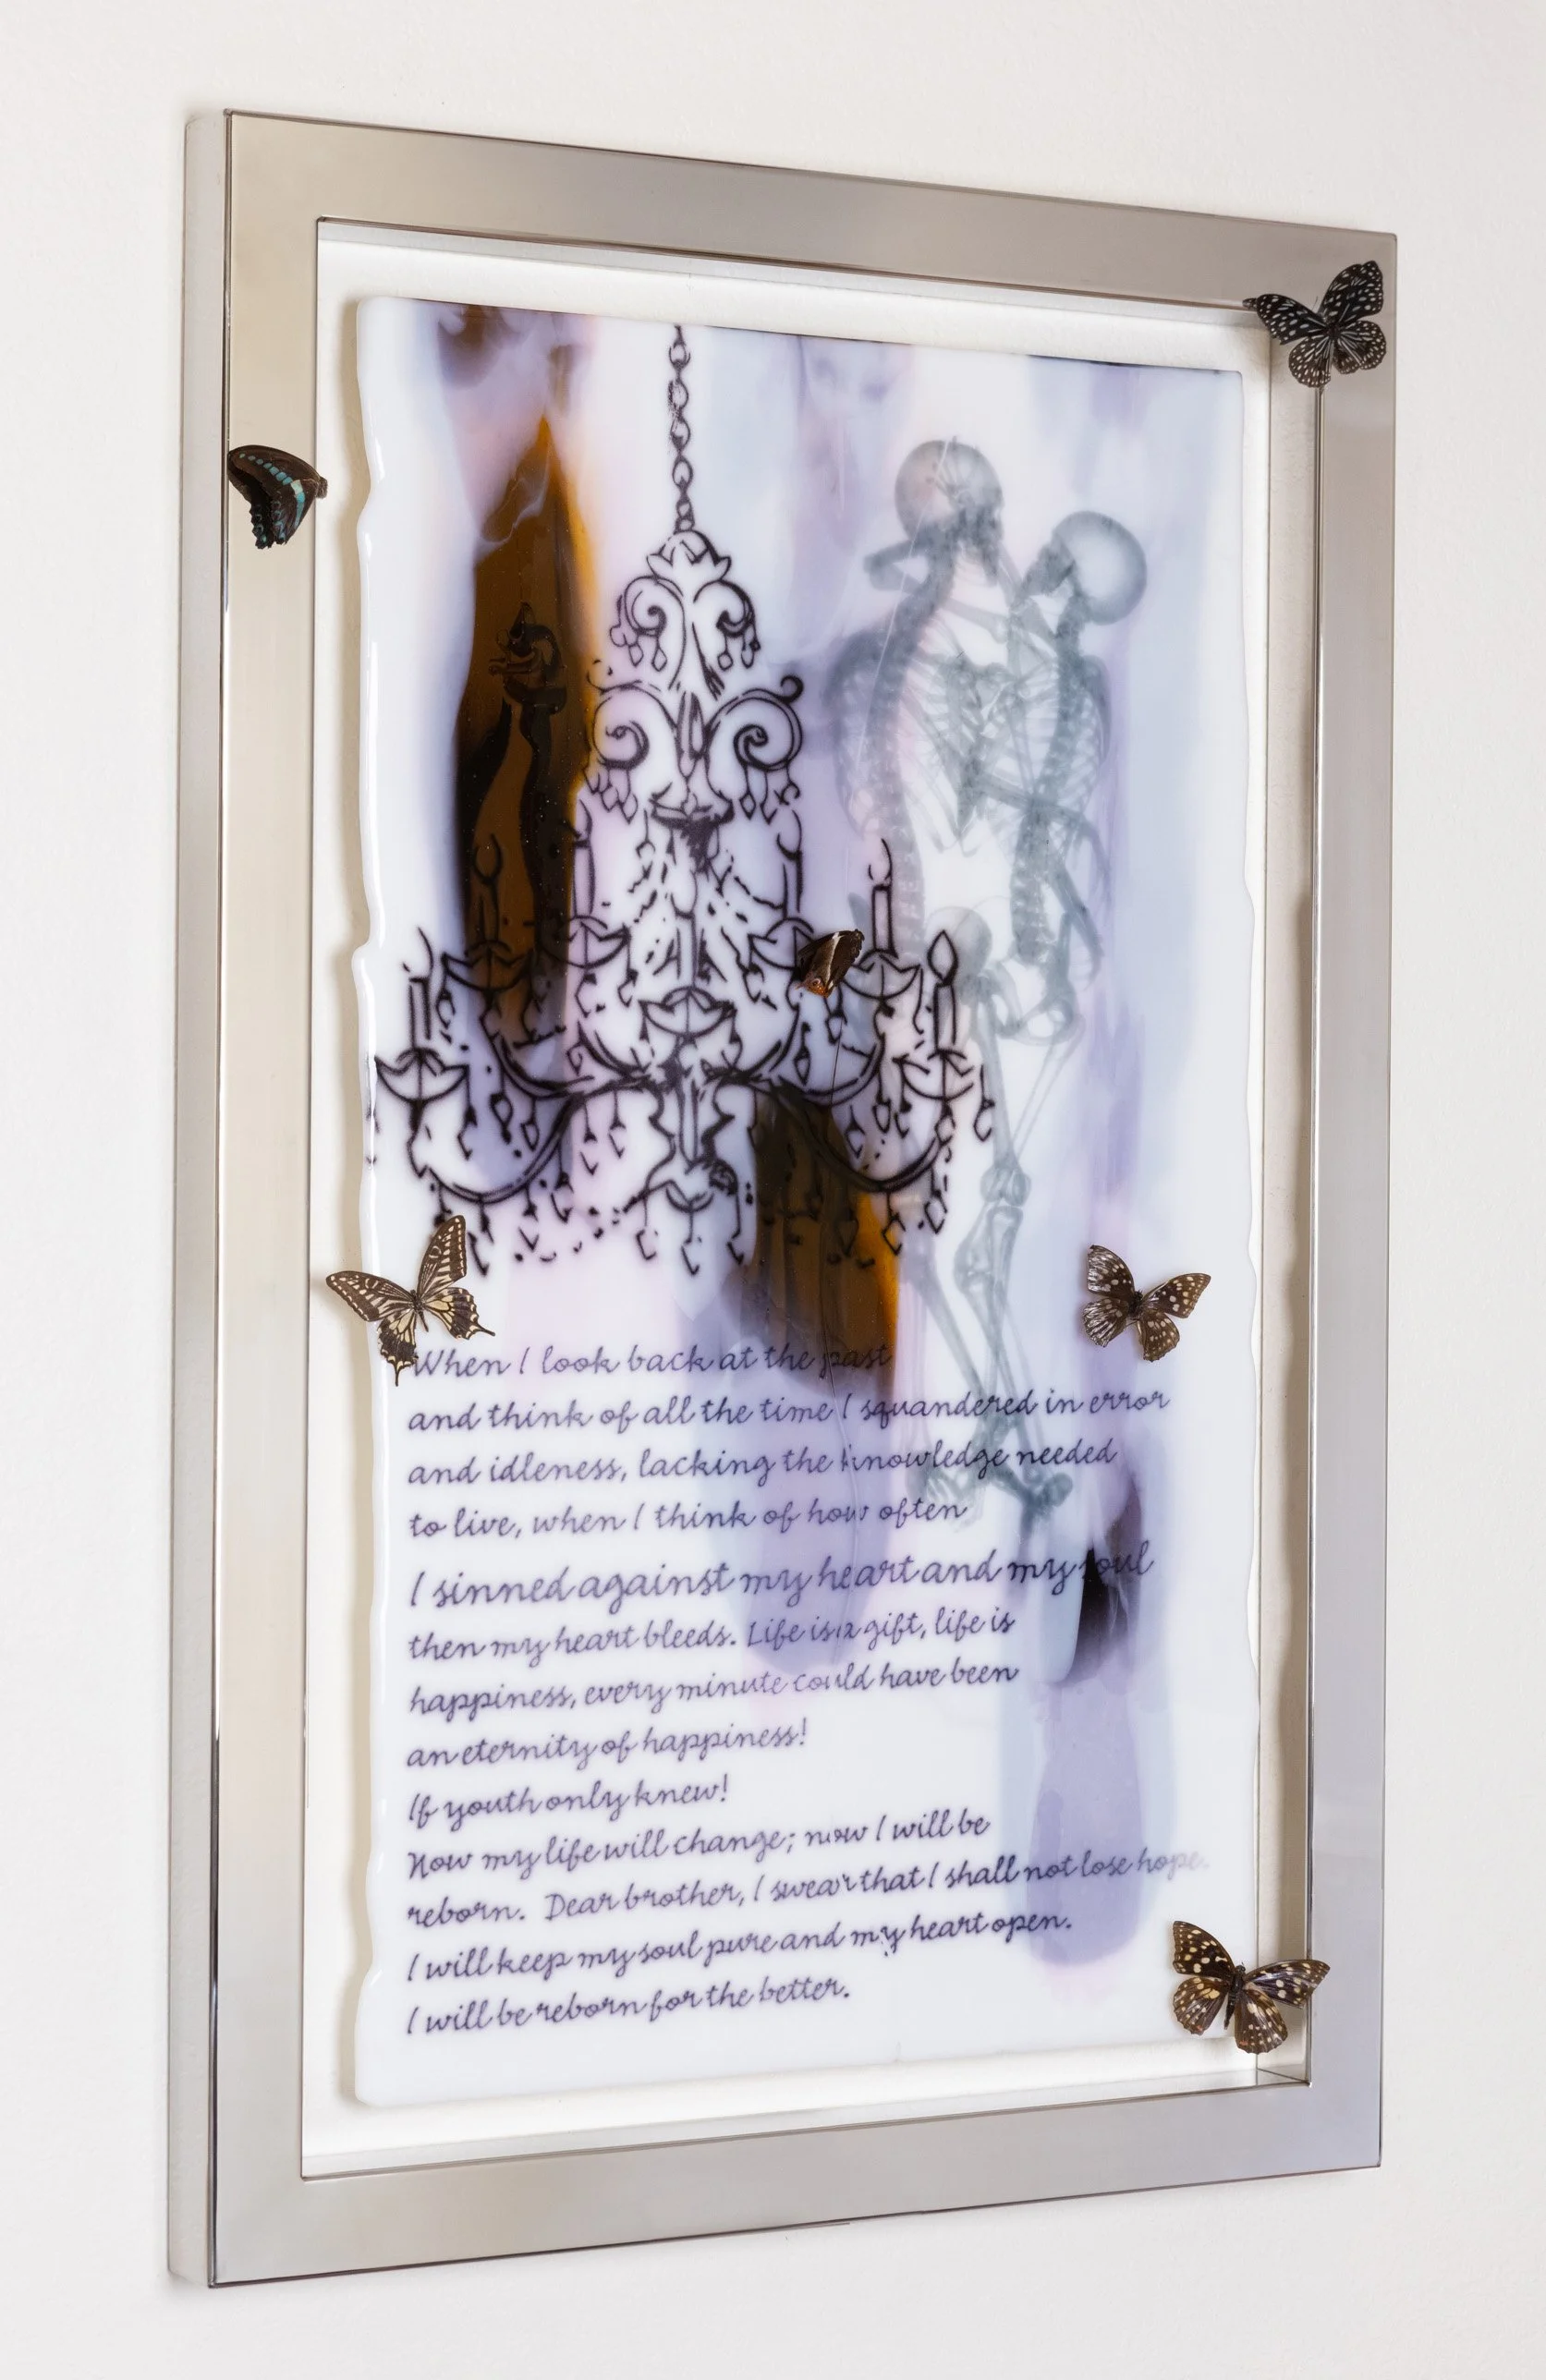 When I look back at the past
and think of all the time I squandered in error
and idleness, lacking the knowledge needed
to live, when I think of how often
I sinned against my heart and my soul
then my heart bleeds. Life is a gift, life is
happiness, every minute could have been
an eternity of happiness!
If youth only knew!
Now my life will change; now I will be
reborn. Dear brother, I swear that I shall not lose hope.
I will keep my soul pure and my heart open.
I will be reborn for the better.